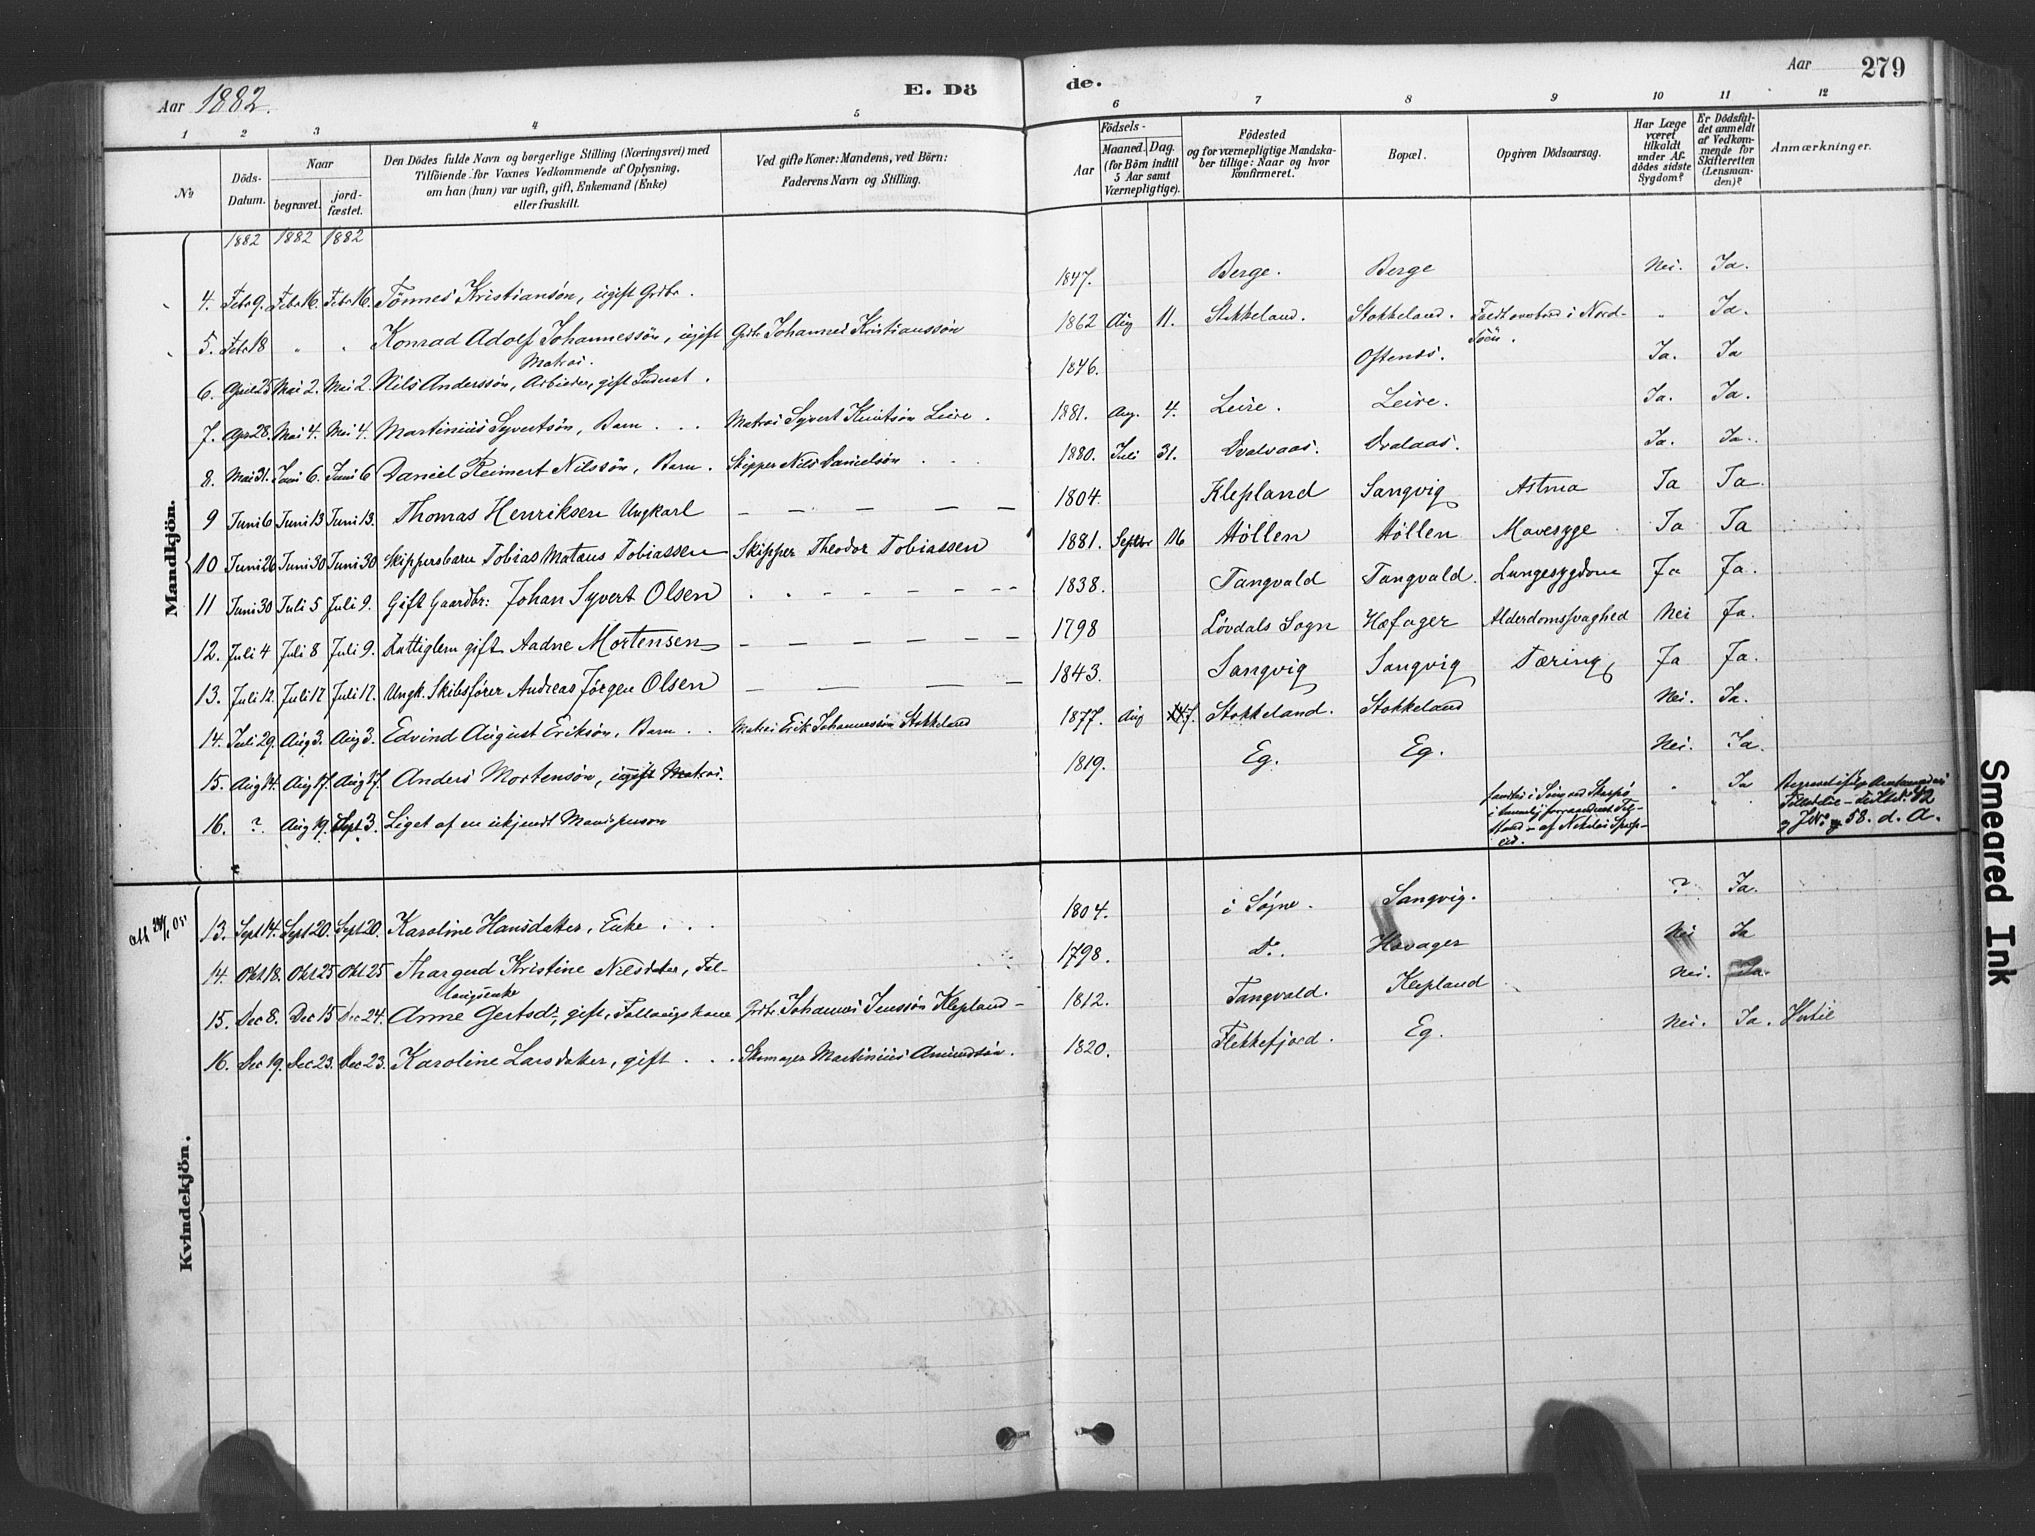 Aar 1882.
E. Dö
de.
Aar
279
1 2 3 4 5 6 7 8 9 10 11 12
No.
Döds-Datum.
Naar
begravet.
jord-fæstet.
Den Dödes fulde Navn og borgerlige Stilling (Næringsvei) med
Tilföiende for Voxnes Vedkommende af Oplysning,
om han (hun) var ugift, gift, Enkemand (Enke)
eller fraskilt.
Ved gifte Koner: Mandens, ved Börn:
Faderens Navn og Stilling.
Födsels-
Aar
Maaned. Dag.
(for Börn indtil
5 Aar samt
Værnepligtige).
Födested
og for værnepligtige Mandska-
ber tillige: Naar og hvor
konfirmeret.
Bopæl.
Opgiven Dödsaarsag.
Har Læge
været
tilkaldt
under Af-
dödes sidste
Sygdom?
Er Dödsfal-
det anmeldt
af Vedkom-
mende for
Skifteretten
(Lensman-
den)?
Anmærkninger.
Mandkjön.
1882 1882 1882
4. Febr 9. Febr 16. Febr 16. Tönnes Kristiansön, ugift Grdbr. 1847. Berge. Berge Nei. Ja.
5. Febr 18 " " Konrad Adolf Johannessön, ugift Grdbr Johannes Kristianssön 1862 Aug 11. Stokkeland. Stokkeland. Faldt overbord i Nord- " Ja.
Matros. Söen.
6. April 25 Mai 2. Mai 2. Nils Anderssön, Arbieder, gift Inderst. 1846. Ja. Ja
7. Apr 28. Mai 4. Mai 4. Martinius Syvertsön, Barn . . . Matros Syvert Knutsön Leire. 1881. Aug. 4. Leire. Leire. Ja. Ja.
8. Mai 31. Juni 6. Juni 6 Daniel Reimert Nilssön, Barn. Skipper Nils Danielsön . . . 1880. Juli 31. Ja. Ja.
9 Juni 6 Juni 13 Juni 13. Thomas Henriksen Ungkarl — — — — — 1804. Klepland Sangvig Astma Ja Ja.
10 Juni 26 Juni 30 Juni 30 Skippersbarn Tobias Mataus Tobiassen Skipper Theodor Tobiassen 1881. Septbr 16 Höllen Höllen Mavesyge Ja Ja
11 Juni 30 Juli 5 Juli 9. Gift Gaardbr: Johan Syvert Olsen 1838. Tangvald Tangvald. Lungesygdom Ja Ja.
12. Juli 4 Juli 8 Juli 9. gift Aadne Mortensen — — — — — 1798 Lövdals Sogn Hæfager Alderdomssvaghed Nei Ja.
13. Juli 12. Juli 17 Juli 17. Ungk. Skibsförer Andreas Jörgen Olsen — — — — 1843. Sangvig Sangvig Tæring Ja Ja.
14. Juli 29. Aug 3. Aug 3. Edvind August Eriksön, Barn . . Matros Erik Johannessön Stokkeland 1877. Aug 7. Stokkeland. Stokkeland Nei. Ja.
15. Aug 14. Aug 17. Aug 17. Anders Mortensön, ugift Matros. 1819. Eg. Eg. Nei. Ja.
16. ? Aug 19. Sept 3. Liget af en ukjendt Mansperson " Ja
58. d. A.
Kvindekjön.
13. Sept 14. Sept 20. Sept 20. Karoline Hansdatter, Enke . . . 1804. i Søgne. Sangvig. ? Ja.
14. Okt 18. Okt 25 Okt 25 Thargerd Kristine Nilsdatter, Fol- 1798. do. Havager Nei Ja
laugsenke
15. Dec 8. Dec 15 Dec 24. Anne Gertsdr, gift, Follaugskone Grdbr Johannes Jenssön Klepland – 1812. Tangvald. Klepland Nei. Ja.
16. Dec 19. Dec 23. Dec 23. Karoline Larsdatter, gift . . . Skomager Martinius Amundsön. 1820. Flekkefjord. Eg. Nei. Ja.
Smeared Ink